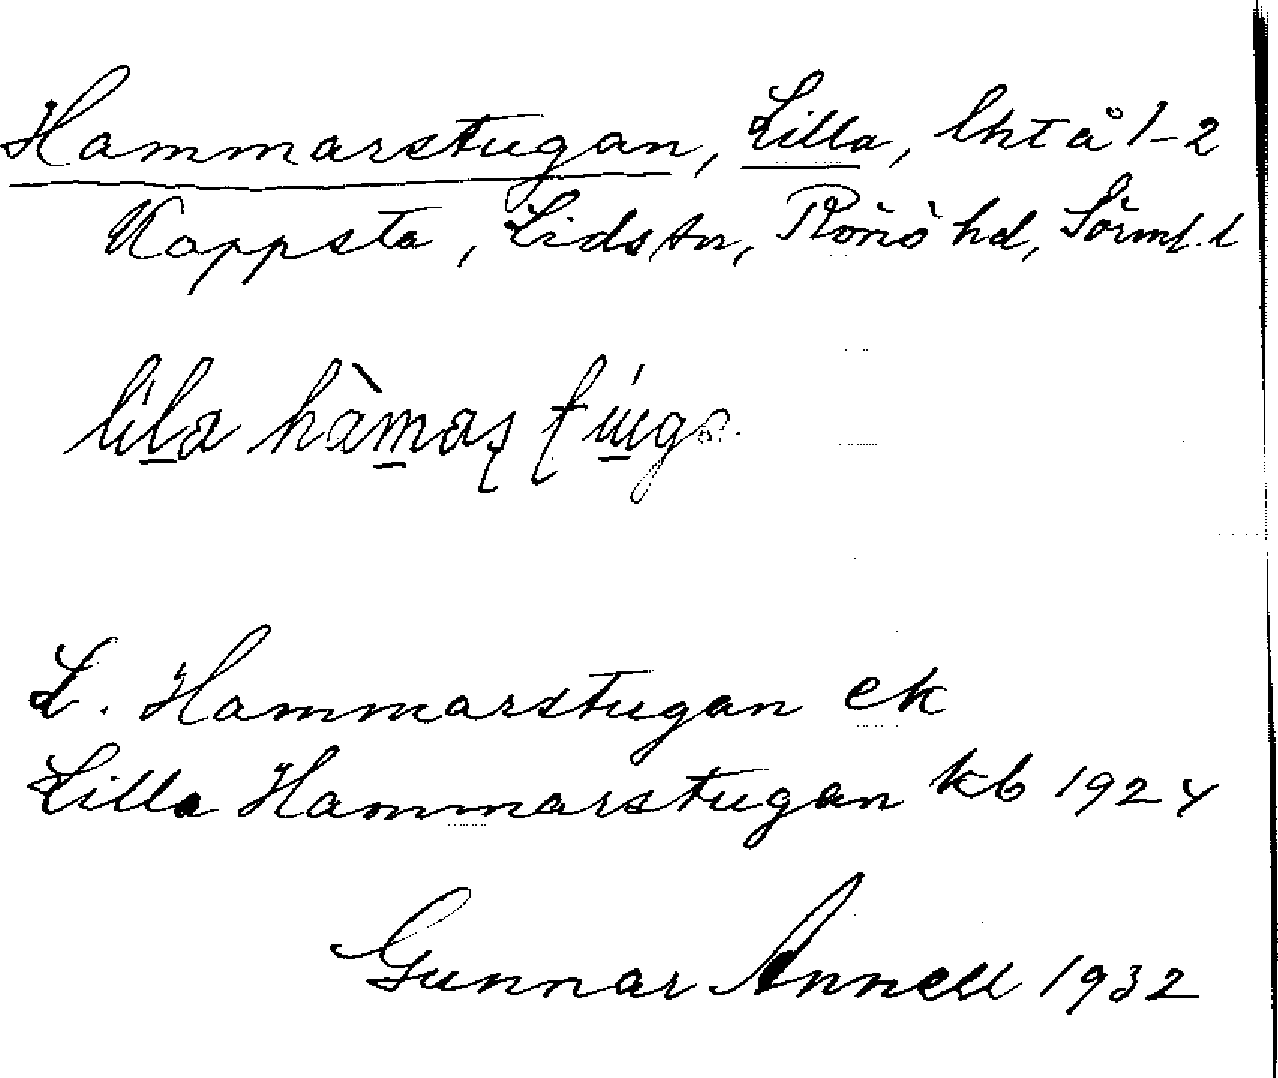 Hammarstugan, Lilla, lht å 1-2
Kappsta, Lids sn, Rönö hd, Sörml. l
L. Hammarstugan ek
Lilla Hammarstugan kb 1924
Gunnar Annell 1932